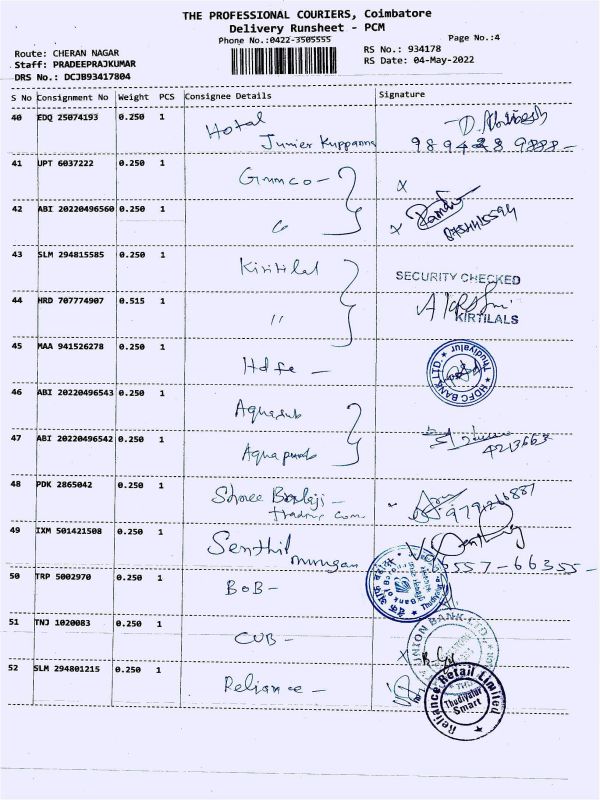 THE PROFESSIONAL COURIERS, Coimbatore
Delivery Runsheet - PCM
Phone No.:0422-3505555
Page No.:4
Route: CHERAN NAGAR
RS No.: 934178
Staff: PRADEEPRAJKUMAR
RS Date: 04-May-2022
DRS No.: DCJB93417804
S No Consignment No Weight PCS Consignee Details Signature
40 EDQ 25074193 0.250 1 Hotal
Junier Kuppanna 989423 9888-
41 UPT 6037222 0.250 1 Gmmco - x
42 ABI 20220496560 0.250 1 x
43 SLM 294815585 0.250 1 Kiritilal SECURITY CHECKED
44 HRD 707774907 0.515 1 " KIRTILALS
45 MAA 941526278 0.250 1 Hdfc - HDFC BANK LTD. Thudiyalur
46 ABI 20220496543 0.250 1 Aquasub
47 ABI 20220496542 0.250 1 Aqua pump 4213663
48 PDK 2865042 0.250 1 Shree Balaji -
trading com
49 IXM 501421508 0.250 1 Senthil
murugan 66557-66355-
50 TRP 5002970 0.250 1 BOB - Bank of Thudiyalur
51 TNJ 1020083 0.250 1 CUB - UNION BANK LTD.
52 SLM 294801215 0.250 1 Reliance - Reliance Retail Limited
Thudiyalur
Smart